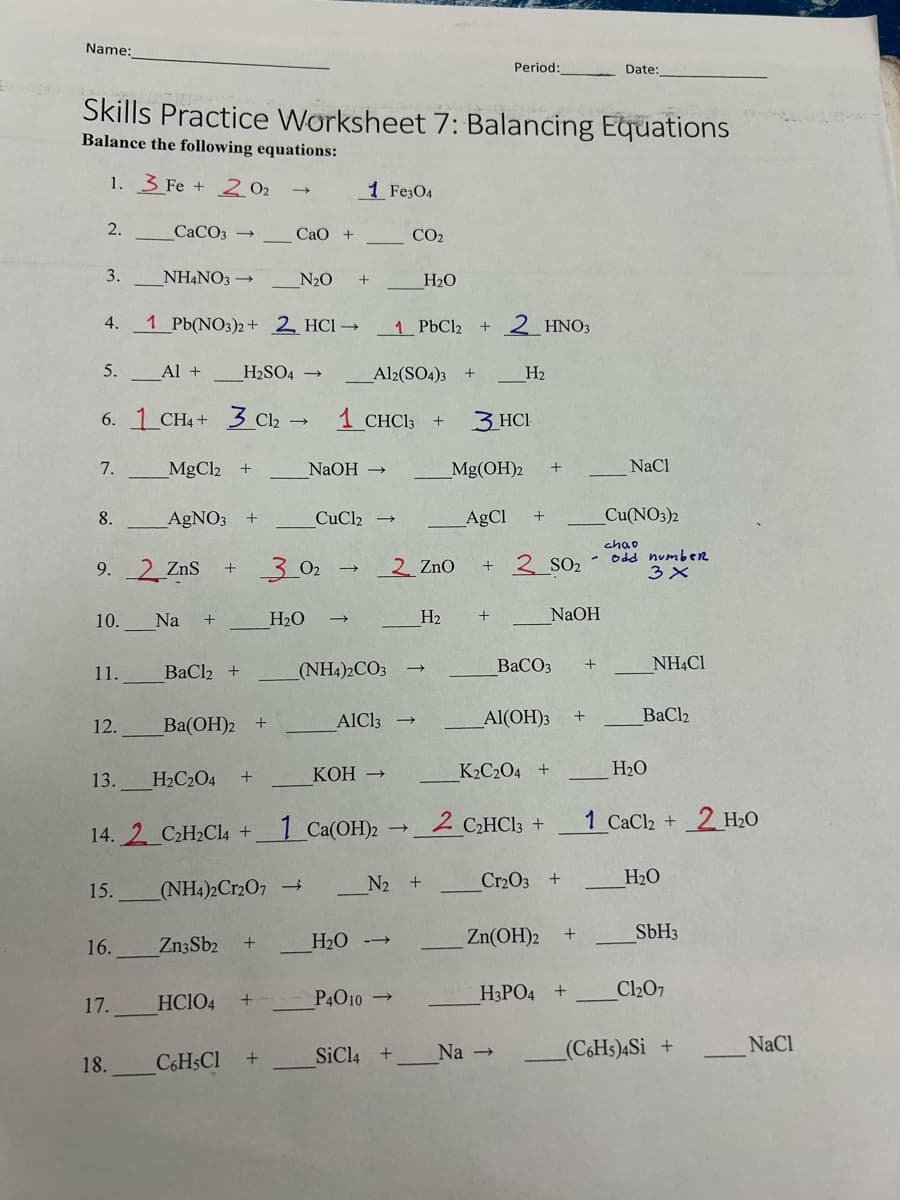 Name:____________________
Period:_______ Date:______________
Skills Practice Worksheet 7: Balancing Equations
Balance the following equations:
1. 3 Fe + 2 O2 → 1 Fe3O4
2. ____CaCO3 → ___ CaO + ____ CO2
3. ___NH4NO3 → ___N2O + ____H2O
4. 1 Pb(NO3)2 + 2 HCl → 1 PbCl2 + 2 HNO3
5. ___Al + ___H2SO4 → ___Al2(SO4)3 + ___H2
6. 1 CH4 + 3 Cl2 → 1 CHCl3 + 3 HCl
7. ____MgCl2 + ____NaOH → ____Mg(OH)2 + ____ NaCl
8. ____AgNO3 + ____CuCl2 → ____AgCl + ____Cu(NO3)2
9. 2 ZnS + 3 O2 → 2 ZnO + 2 SO2 - chao
odd number
3 x
10. ___Na + ____H2O → ____H2 + ____NaOH
11. ____BaCl2 + ____(NH4)2CO3 → _____BaCO3 + ____NH4Cl
12. ____Ba(OH)2 + _____AlCl3 → ____Al(OH)3 + ____BaCl2
13. ___H2C2O4 + ____KOH → ____K2C2O4 + ____ H2O
14. 2 C2H2Cl4 + 1 Ca(OH)2 → 2 C2HCl3 + 1 CaCl2 + 2 H2O
15. ____(NH4)2Cr2O7 → ___N2 + ____Cr2O3 + ____H2O
16. ____Zn3Sb2 + ___H2O --→ ____ Zn(OH)2 + ____SbH3
17. ____HClO4 + ____P4O10 → _____H3PO4 + ____Cl2O7
18. ____C6H5Cl + ____SiCl4 + ____Na → ____(C6H5)4Si + ____NaCl